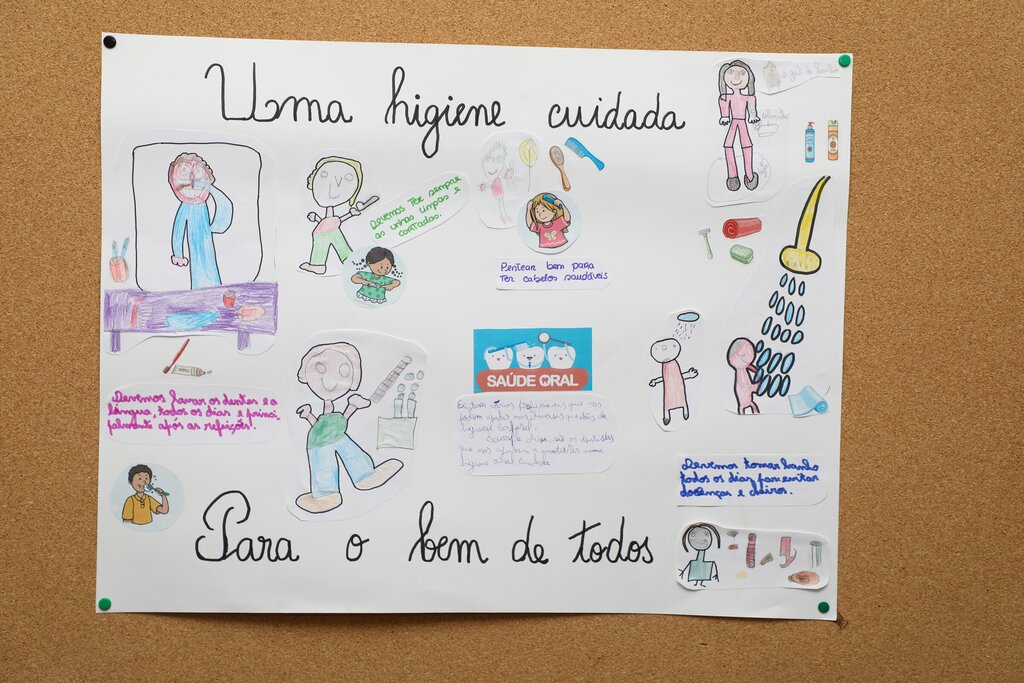 Uma higiene cuidada
o gel de banho
sabonete
Devemos ter sempre
as unhas limpas e
cortadas.
Pentear bem para
ter cabelos saudáveis
SAÚDE ORAL
Devemos lavar os dentes e a
língua, todos os dias e princi-
palmente após as refeições!
Existem vários profissionais que nos
podem ajudar nas diversas questões da
higiene corporal.
que nos ajudam a
higiene oral cuidada.
Devemos tomar banho
todos os dias para evitar
doenças e cheiros.
Para o bem de todos